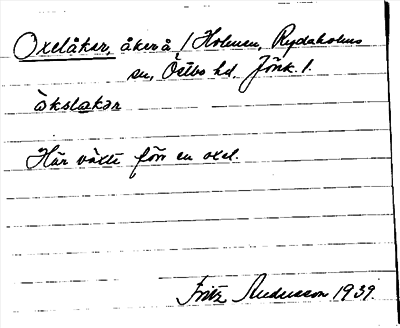 Oxelåker, åker å / Holmen, Rydaholms
sn, Östbo hd, Jönk. l.
àkslakər
Här växte förr en oxel.
Fritz Andersson 1939.